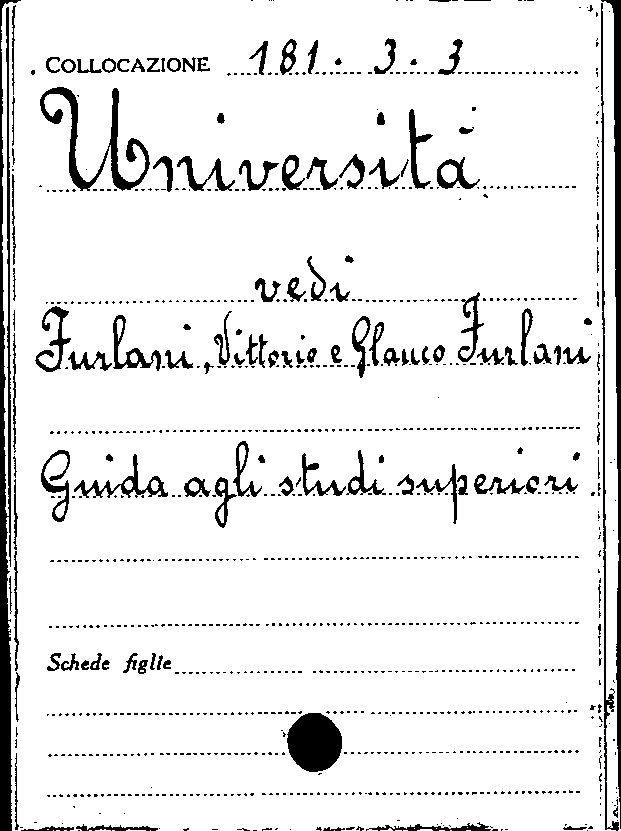 . COLLOCAZIONE 181. 3. 3
Università
vedi
Furlani, Vittorio e Glauco Furlani
Guida agli studi superiori.
Schede figlie